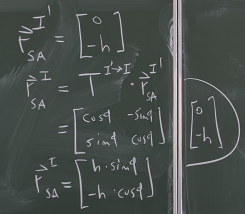 r⃗_SA^I' = [0; -h]
r⃗_SA^I = T^{I'→I} · r⃗_SA^I'
= [cosφ -sinφ; sinφ cosφ] [0; -h]
r⃗_SA^I = [h·sinφ; -h·cosφ]